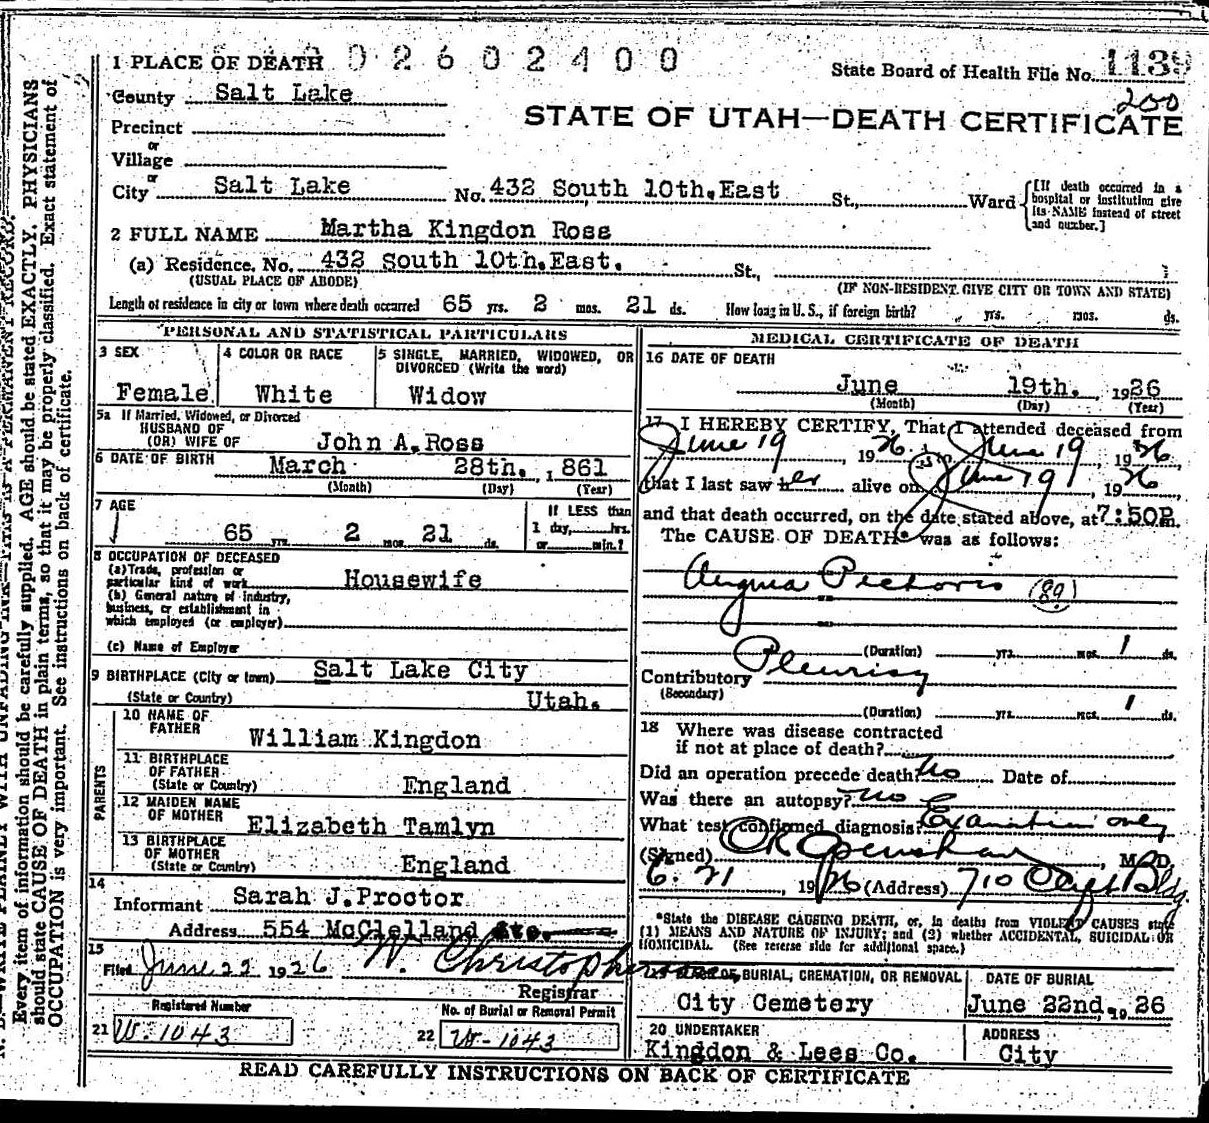 1 PLACE OF DEATH 0 2 6 0 2 4 0 0
State Board of Health File No. 1139
County Salt Lake
200
STATE OF UTAH—DEATH CERTIFICATE
Precinct
or
Village
or
City Salt Lake No. 432 South 10th. East St., Ward
[If death occurred in a hospital or institution give its NAME instead of street and number.]
2 FULL NAME Martha Kingdon Ross
(a) Residence. No. 432 South 10th. East. St.,
(USUAL PLACE OF ABODE) (IF NON-RESIDENT GIVE CITY OR TOWN AND STATE)
Length of residence in city or town where death occurred 65 yrs. 2 mos. 21 ds. How long in U. S., if foreign birth? yrs. mos. ds.
PERSONAL AND STATISTICAL PARTICULARS
3 SEX
Female
4 COLOR OR RACE
White
5 SINGLE, MARRIED, WIDOWED, OR
DIVORCED (Write the word)
Widow
5a If Married, Widowed, or Divorced
HUSBAND OF
(OR) WIFE OF John A. Ross
6 DATE OF BIRTH March 28th. , 1861
(Month) (Day) (Year)
7 AGE
65 yrs. 2 mos. 21 ds.
If LESS than
1 day, hrs.
or min.?
8 OCCUPATION OF DECEASED
(a) Trade, profession or
particular kind of work Housewife
(b) General nature of industry,
business, or establishment in
which employed (or employer)
(c) Name of Employer
9 BIRTHPLACE (City or town) Salt Lake City
(State or Country) Utah.
PARENTS
10 NAME OF
FATHER William Kingdon
11 BIRTHPLACE
OF FATHER
(State or Country) England
12 MAIDEN NAME
OF MOTHER Elizabeth Tamlyn
13 BIRTHPLACE
OF MOTHER
(State or Country) England
14
Informant Sarah J. Proctor
Address 554 McClelland
15
Filed June 22 1926 W. Christopherson
Registrar
Registered Number No. of Burial or Removal Permit
21 W-1043 22 W-1043
MEDICAL CERTIFICATE OF DEATH
16 DATE OF DEATH
June 19th. , 1926
(Month) (Day) (Year)
17 I HEREBY CERTIFY, That I attended deceased from
June 19 , 1926, to June 19 , 1926,
that I last saw her alive on June 19 , 1926,
and that death occurred, on the date stated above, at 7:50P m.
The CAUSE OF DEATH* was as follows:
Angina Pectoris (89)
(Duration) yrs. mos. 1 ds.
Contributory Pleurisy
(Secondary)
(Duration) yrs. mos. 1 ds.
18 Where was disease contracted
if not at place of death?
Did an operation precede death? No Date of
Was there an autopsy? No
What test confirmed diagnosis? Examination only
(Signed) Openshaw , M. D.
6-21 , 1926 (Address) 710 Clift Bldg.
*State the DISEASE CAUSING DEATH, or, in deaths from VIOLENT CAUSES state
(1) MEANS AND NATURE OF INJURY; and (2) whether ACCIDENTAL, SUICIDAL OR
HOMICIDAL. (See reverse side for additional space.)
19 PLACE OF BURIAL, CREMATION, OR REMOVAL
City Cemetery
DATE OF BURIAL
June 22nd. , 19 26
20 UNDERTAKER
Kingdon & Lees Co.
ADDRESS
City
READ CAREFULLY INSTRUCTIONS ON BACK OF CERTIFICATE
Every item of information should be carefully supplied. AGE should be stated EXACTLY. PHYSICIANS
should state CAUSE OF DEATH in plain terms, so that it may be properly classified. Exact statement of
OCCUPATION is very important. See instructions on back of certificate.